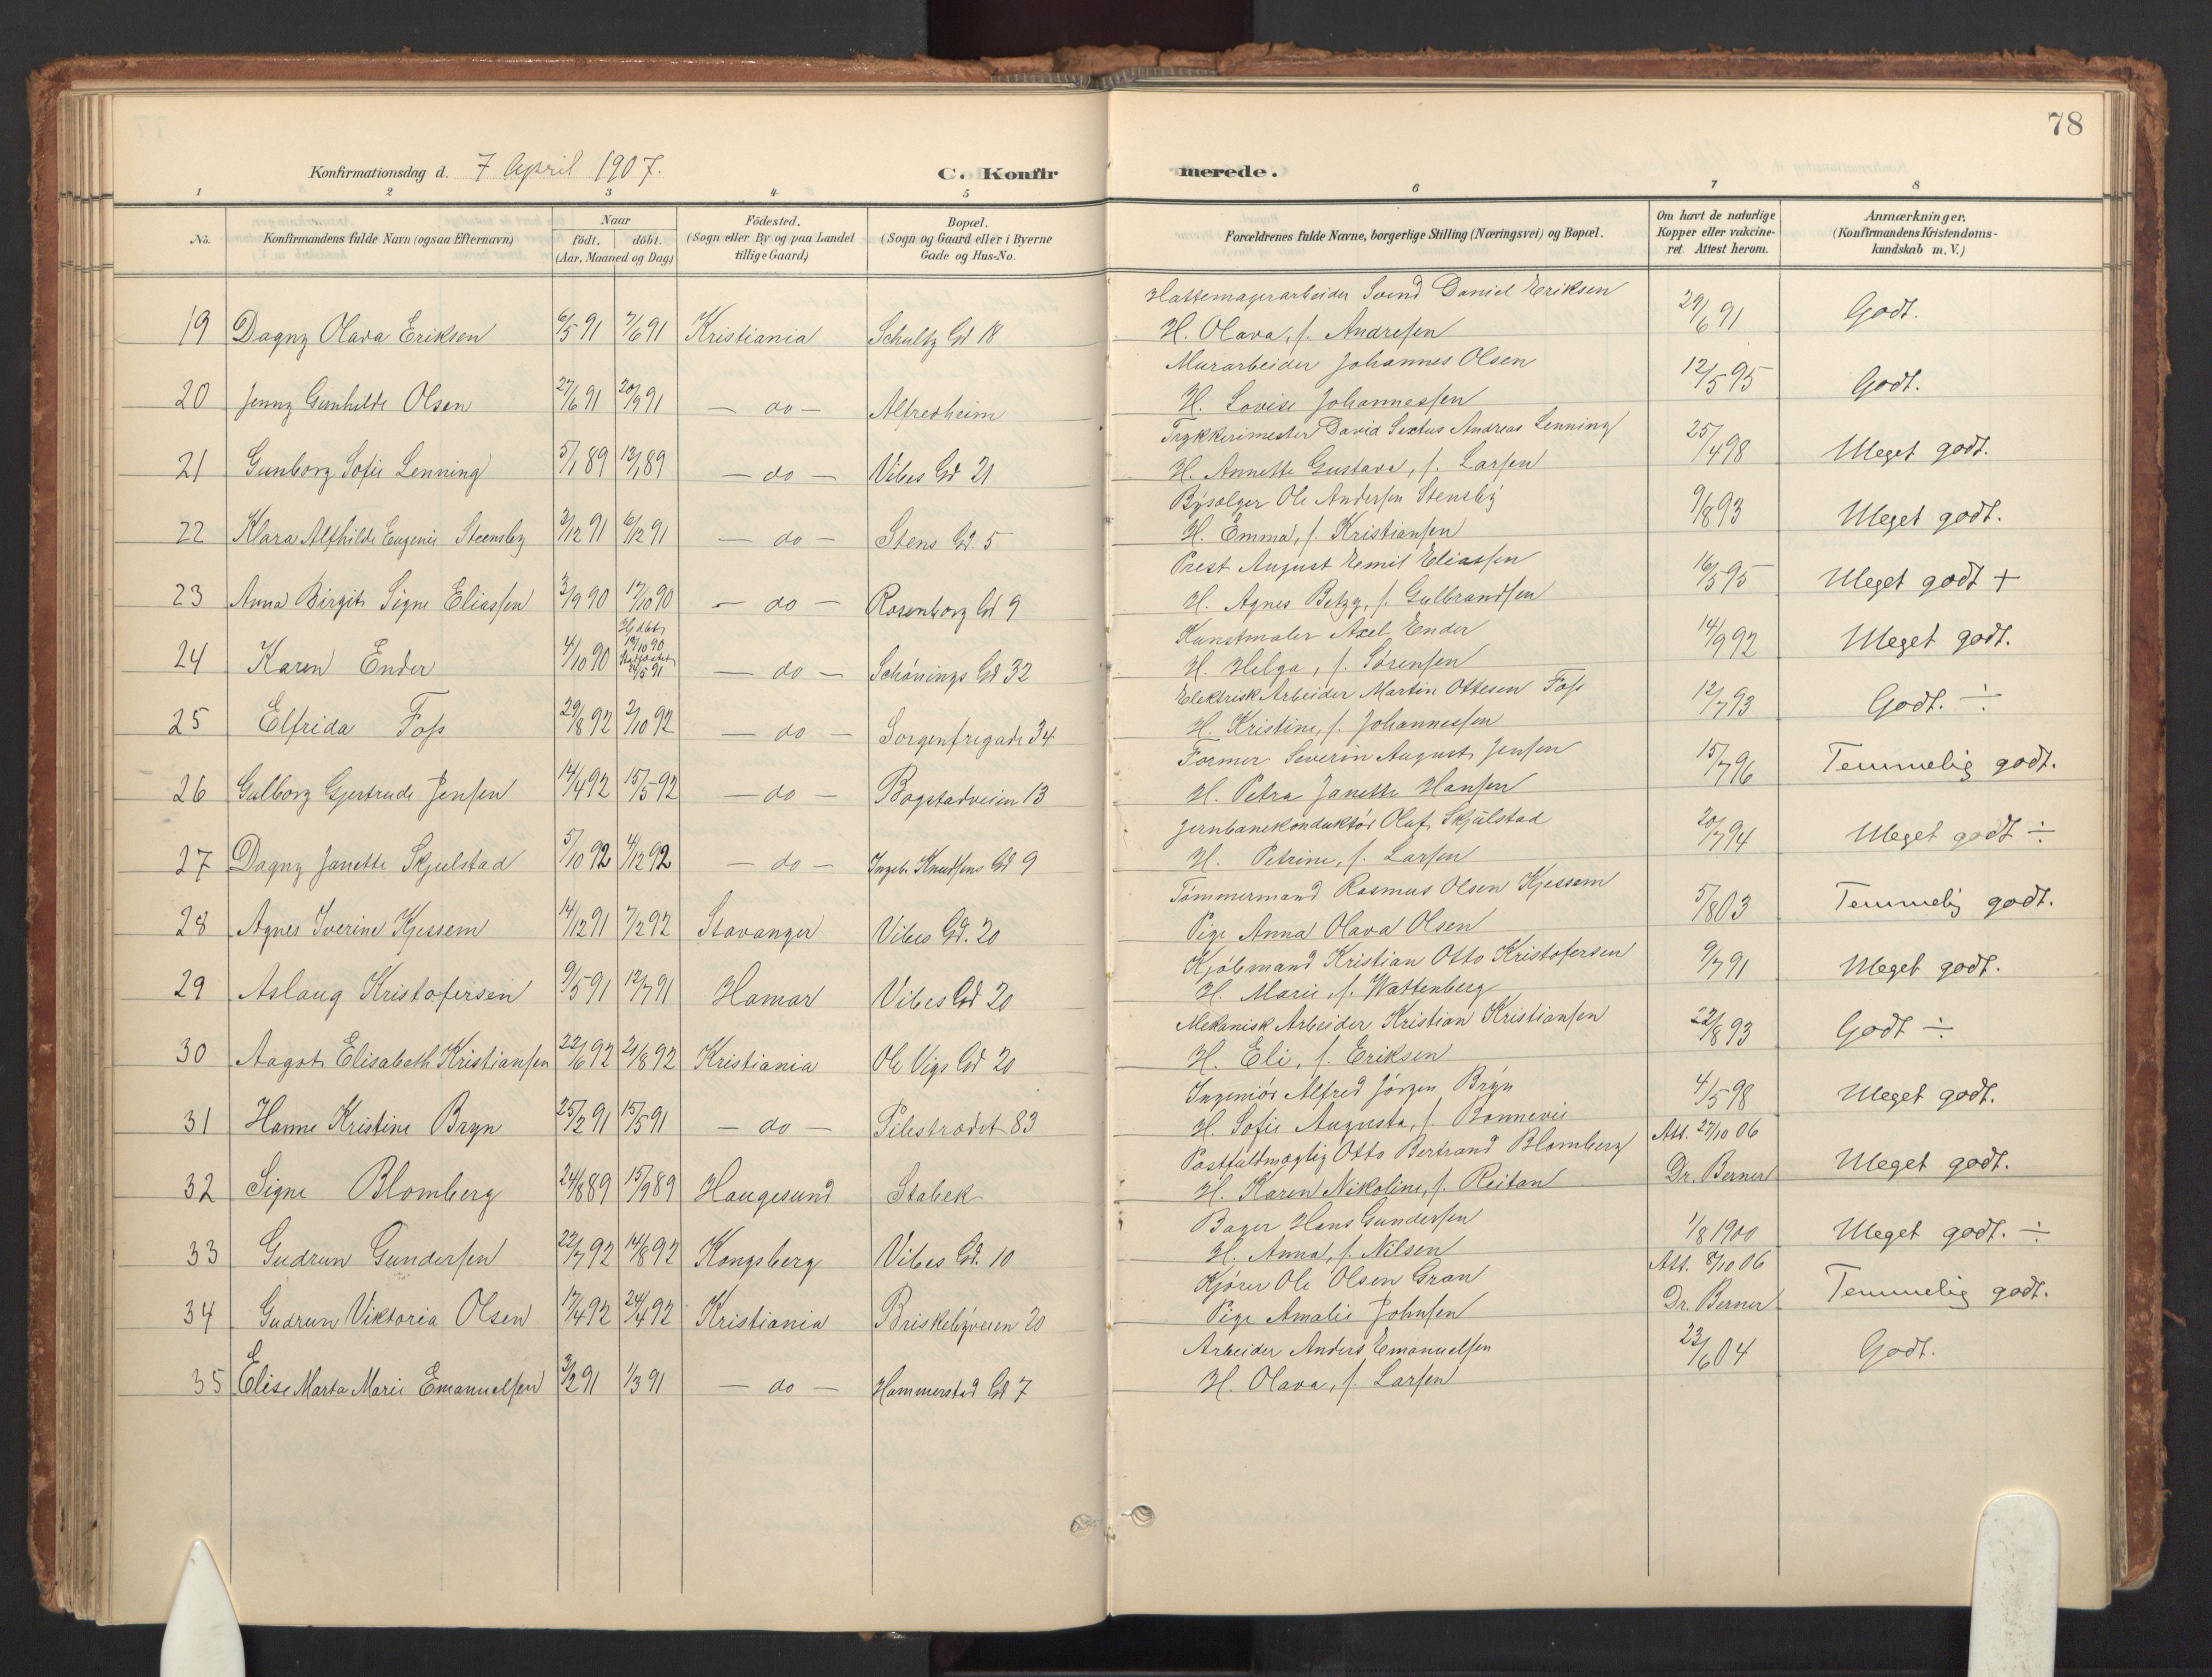 78
Konfirmationsdag d. 7 April 1907.
C. Konfirmerede.
1 2 3 4 5 6 7 8
No.
Konfirmandens fulde Navn (ogsaa Efternavn)
Naar
födt. döbt.
(Aar, Maaned og Dag)
Födested.
(Sogn eller By og paa Landet
tillige Gaard)
Bopæl.
(Sogn og Gaard eller i Byerne
Gade og Hus-No.
Forældrenes fulde Navne, borgerlige Stilling (Næringsvei) og Bopæl.
Om havt de naturlige
Kopper eller vakcine-
ret. Attest herom.
Anmærkninger,
(Konfirmandens Kristendoms-
kundskab m. V.)
Hattemagerarbeider Svend Daniel Eriksen
19 Dagny Olava Eriksen 6/5 91 7/6 91 Kristiania Schultz Gd 18 H. Olava, f. Andresen 29/6 91 Godt.
Murarbeider Johannes Olsen
20 Jenny Gunhilde Olsen 27/6 91 20/9 91 — do — Alfredheim H. Lovise Johannessen 12/5 95 Godt.
Trykkerimester David Sextus Andreas Lenning
21 Gunborg Sofie Lenning 5/1 89 13/1 89 — do — Vibes Gd 21 H. Annette Gustava, f. Larsen 25/4 98 Meget godt.
Bysælger Ole Andersen Stensby
22 Klara Alfhilde Eugenie Steensby 3/12 91 6/12 91 — do — Stens Gd. 5 H. Emma, f. Kristiansen 9/8 93 Meget godt.
Prest August Emil Eliassen
23 Anna Birgit Signe Eliassen 3/9 90 17/10 90 — do — Rosenborg Gd 9 H. Agnes Betzy, f. Gulbrandsen 16/5 95 Meget godt +
Kunstmaler Axel Ender
24 Karen Ender 4/10 90 Hjdbt. 19/10 90 Stadfæstet 24/5 91 — do — Schönings Gd 32 H. Helga, f. Sørensen 14/9 92 Meget godt.
Elektrisk Arbeider Martin Ottesen Foss
25 Elfrida Foss 29/8 92 2/10 92 — do — Sorgenfrigade 34 H. Kristine, f. Johannessen 12/7 93 Godt. ÷
Former Severin August Jensen
26 Gulborg Gjertrude Jensen 14/4 92 15/5 92 — do — Bogstadveien 13 H. Petra Janette Hansen 15/7 96 Temmelig godt.
Jernbanekonduktör Oluf Skjülstad
27 Dagny Janette Skjulstad 5/10 92 4/12 92 — do — Ingeb. Knudsens Gd 9 H. Petrine, f. Larsen 20/7 94 Meget godt ÷
Tömmermand Rasmus Olsen Kjessem
28 Agnes Iverine Kjessem 14/12 91 7/2 92 Stavanger Vibes Gd. 20 Pige Anna Olava Olsen 5/8 03 Temmelig godt.
Kjöbmand Kristian Otto Kristofersen
29 Aslaug Kristofersen 9/5 91 12/7 91 Hamar Vibes Gd 20 H. Marie, f. Wattenberg 9/7 91 Meget godt.
Mekanisk Arbeider Kristian Kristiansen
30 Aagot Elisabeth Kristiansen 22/6 92 21/8 92 Kristiania Ole Vigs Gd 20 H. Eli, f. Eriksen 22/8 93 Godt ÷
Ingeniör Alfred Jörgen Bryn
31 Hanne Kristine Bryn 25/2 91 15/5 91 — do — Pilestrædet 83 H. Sofie Augusta, f. Bonnevie 4/5 98 Meget godt.
Postfuldmægtig Otto Bertrand Blomberg Att. 27/10 06
32 Signe Blomberg 24/8 89 15/9 89 Haugesund Stabek H. Karen Nikoline, f. Reitan Dr. Berner Meget godt.
Bager Hans Gundersen
33 Gudrun Gundersen 22/7 92 14/8 92 Kongsberg Vibes Gd. 10 H. Anna, f. Nilsen 1/8 1900 Meget godt. ÷
Kjörer Ole Olsen Gran Att. 8/10 06
34 Gudrun Viktoria Olsen 17/4 92 24/4 92 Kristiania Briskebyveien 20 Pige Amalie Johnsen Dr. Berner Temmelig godt.
Arbeider Anders Emanuelsen
35 Elise Marta Marie Emanuelsen 3/2 91 1/3 91 — do — Hammerstad Gd 7 H. Olava, f. Larsen 23/6 04 Godt.